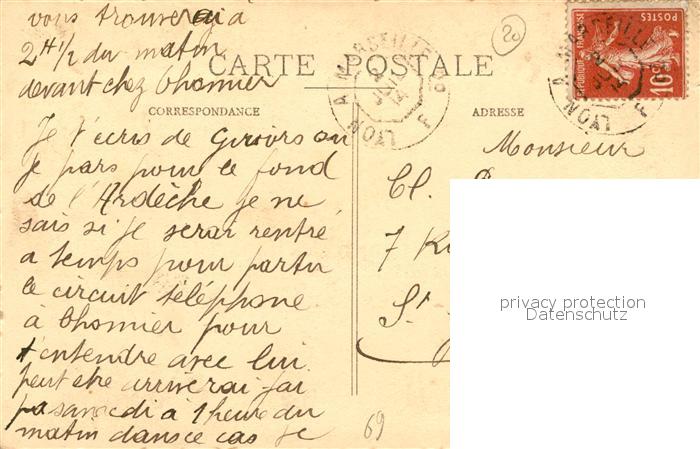 vous trouverai a
2 H 1/2 du matin
devant chez Thomier
20
CARTE POSTALE
CORRESPONDANCE
ADRESSE
LYON A MARSEILLE
LYON A MARSEILLE
POSTES
REPUBLIQUE FRANÇAISE
10c
Je t'écris de Givors ou
Je pars pour le fond
de l'Ardèche je ne
sais si je serai rentré
a temps pour partir
le circuit téléphone
à Thomier pour
t'entendre avec lui
peut etre arriverai-je
samedi à 1 heure du
matin dans ce cas je
69
Monsieur
Cl.
7 R
St
privacy protection
Datenschutz